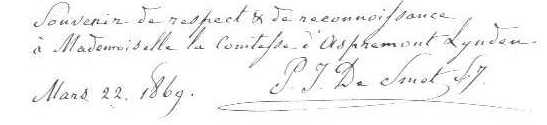 Souvenir de respect & de reconnoissance
à Mademoiselle la Comtesse d'Aspremont Lynden.
Mars 22. 1869. P. J. De Smet S.J.